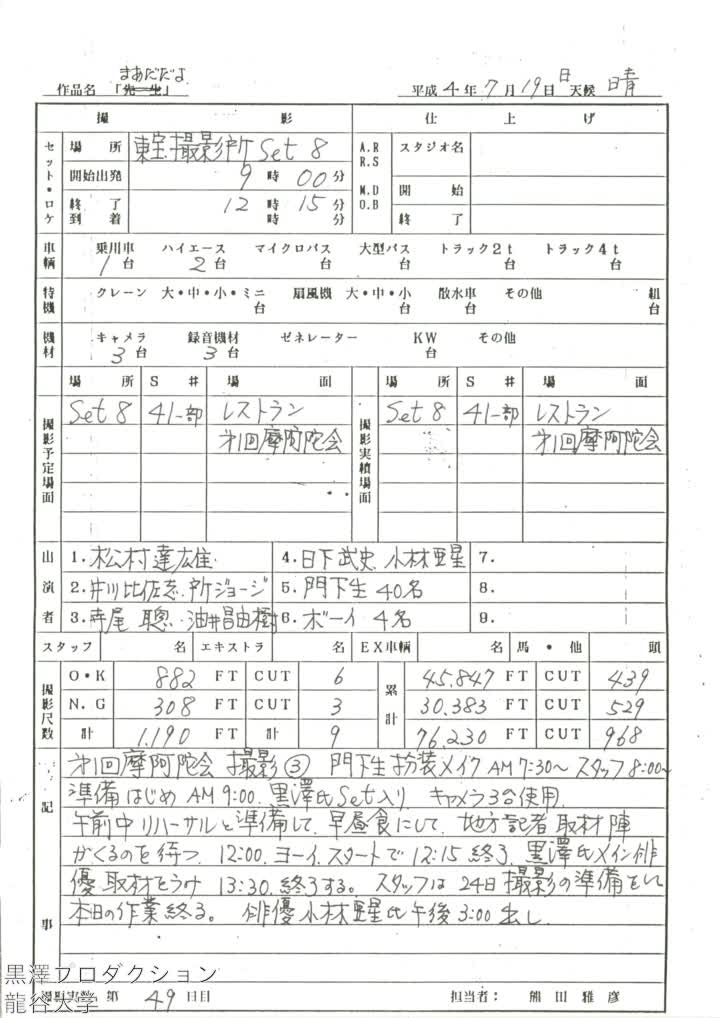 まあだだよ
作品名 「先生」 平成4年7月19日 日 天候 晴
撮 影 仕 上 げ
セット・ロケ 場所 東宝撮影所 Set 8 A.R R.S M.D O.B スタジオ名
開始出発 9時00分 開 始
終了到着 12時15分 終 了
時 分
車輌 乗用車 1台 ハイエース 2台 マイクロバス 台 大型バス 台 トラック2t 台 トラック4t 台
特機 クレーン 大・中・小・ミニ 台 扇風機 大・中・小 台 散水車 台 その他 組 台
機材 キャメラ 3台 録音機材 3台 ゼネレーター KW 台 その他
場 所 S # 場 面 場 所 S # 場 面
撮影予定場面 Set 8 41一部 レストラン 撮影実績場面 Set 8 41一部 レストラン
第1回摩阿陀会 第1回摩阿陀会
出演者 1.松村達雄 4.日下武史 小林亜星 7.
2.井川比佐志・所ジョージ 5.門下生 40名 8.
3.寺尾 聰・油井昌由樹 6.ボーイ 4名 9.
スタッフ 名 エキストラ 名 EX車輌 名 馬・他 頭
撮影尺数 O・K 882 FT CUT 6 累計 45.847 FT CUT 439
N.G 308 FT CUT 3 30.383 FT CUT 529
計 1.190 FT 計 9 76.230 FT CUT 968
記事
第1回摩阿陀会 撮影③ 門下生扮装メイクAM7:30〜 スタッフ8:00〜
準備はじめ AM9:00.黒澤氏Set入り. キャメラ3台使用.
午前中リハーサルと準備して、早昼食にして、地方記者取材陣
がくるのを待つ. 12:00.ヨーイ.スタートで12:15終了.黒澤氏メイン俳
優取材をうけ 13:30.終了する。 スタッフは24日撮影の準備をして
本日の作業終る。 俳優小林亜星氏午後3:00出し.
撮影実績 第49日目 担当者: 熊田雅彦
黒澤プロダクション
龍谷大学